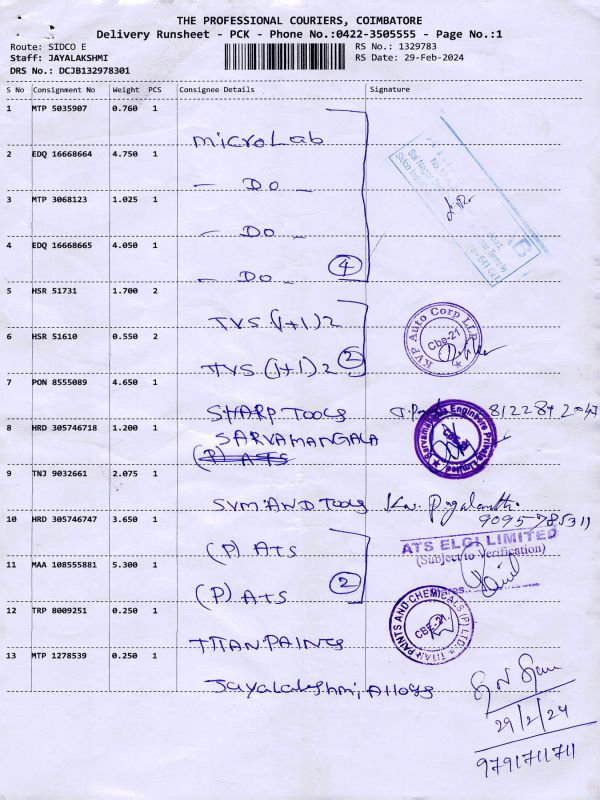 THE PROFESSIONAL COURIERS, COIMBATORE
Delivery Runsheet - PCK - Phone No.:0422-3505555 - Page No.:1
Route: SIDCO E
RS No.: 1329783
Staff: JAYALAKSHMI
RS Date: 29-Feb-2024
DRS No.: DCJB132978301
S No Consignment No Weight PCS Consignee Details Signature
1 MTP 5035907 0.760 1
MicroLab
2 EDQ 16668664 4.750 1
— DO —
3 MTP 3068123 1.025 1
— DO —
4 EDQ 16668665 4.050 1
— DO — 4
5 HSR 51731 1.700 2
TVS (1+1) 2
KVP Auto Corp LLP
Cbe-21
6 HSR 51610 0.550 2
TVS (1+1) 2 2
7 PON 8555089 4.650 1
SHARP TOOLS
8 HRD 305746718 1.200 1
SARVAMANGALA
(P) ATS
Sarvamangala Engineers Private Limited
9 TNJ 9032661 2.075 1
SVM AND TOOLS
9095785311
10 HRD 305746747 3.650 1
(P) ATS
ATS ELGI LIMITED
(Subject to Verification)
11 MAA 108555881 5.300 1
(P) ATS 2
12 TRP 8009251 0.250 1
TITAN PAINTS
TITAN PAINTS AND CHEMICALS (P) LTD.
CBE-21
13 MTP 1278539 0.250 1
Jayalakshmi, Alloys
29/2/24
9791711711